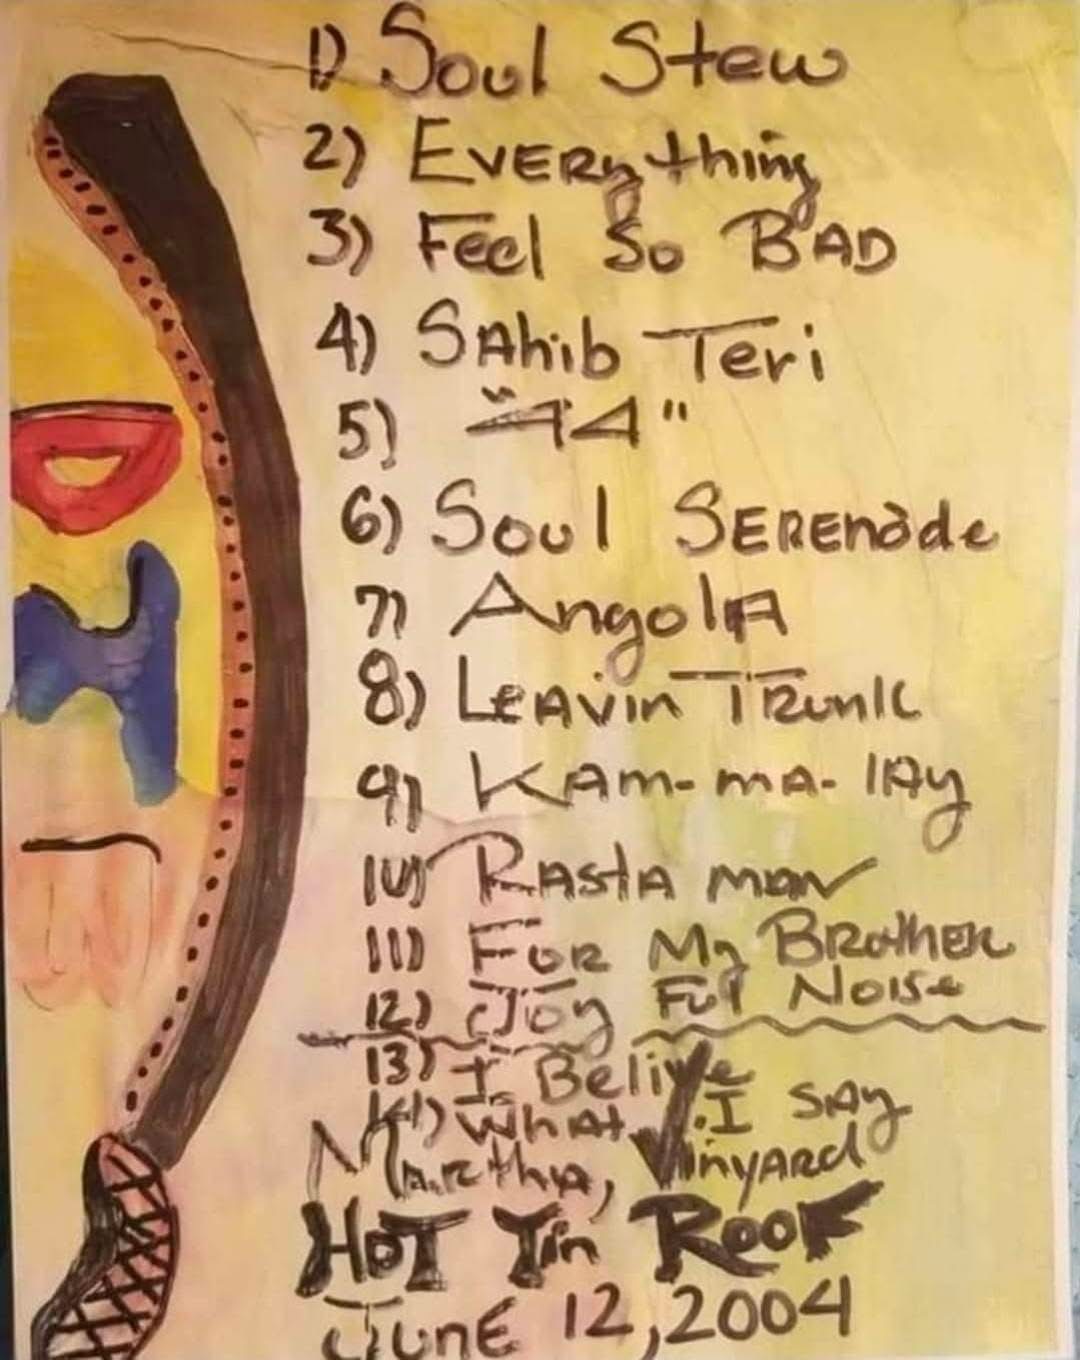 1) Soul Stew
2) EVERything
3) Feel So BAD
4) SAhib Teri
5) "44"
6) Soul SERENade
7) AngolA
8) LEAvin TRunk
9) KAm-mA-lAy
10) RAstA mAN
11) FOR My BRotHER
12) Joy Ful Noise
13) I Belive
14) WhAt I SAy
MARthA, VinyARd
HOT Tin ROOF
JunE 12, 2004